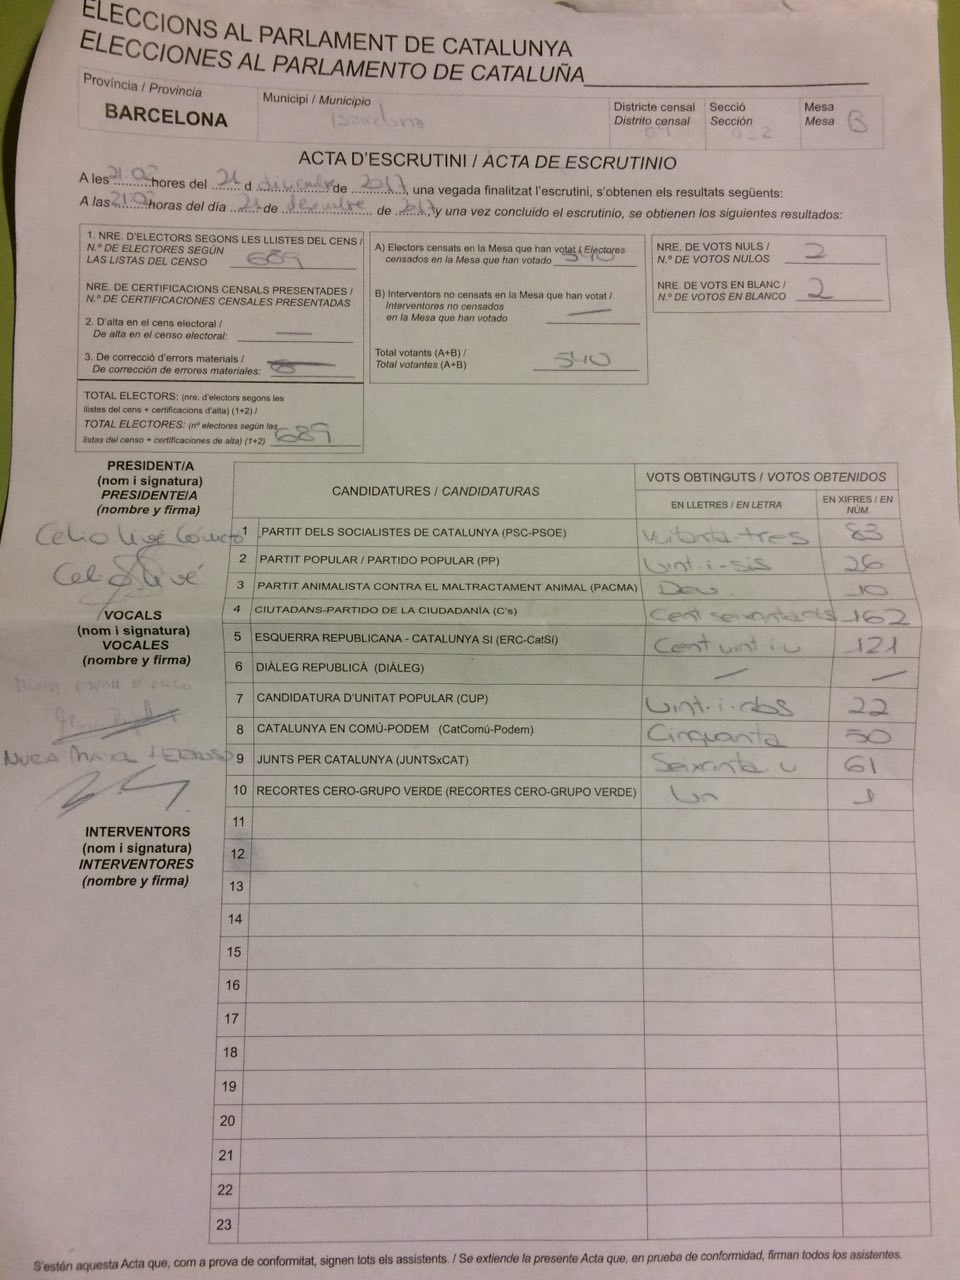 ELECCIONS AL PARLAMENT DE CATALUNYA
ELECCIONES AL PARLAMENTO DE CATALUÑA
Província / Provincia
BARCELONA
Municipi / Municipio
Barcelona
Districte censal
Distrito censal
Secció
Sección
032
Mesa
Mesa
B
ACTA D'ESCRUTINI / ACTA DE ESCRUTINIO
A les 21.02 hores del 21 d desembre de 2017, una vegada finalitzat l'escrutini, s'obtenen els resultats següents:
A las 21.02 horas del dia 21 de desembre de 2017, y una vez concluido el escrutinio, se obtienen los siguientes resultados:
1. NRE. D'ELECTORS SEGONS LES LLISTES DEL CENS /
N.º DE ELECTORES SEGÚN
LAS LISTAS DEL CENSO 689
NRE. DE CERTIFICACIONS CENSALS PRESENTADES /
N.º DE CERTIFICACIONES CENSALES PRESENTADAS
2. D'alta en el cens electoral /
De alta en el censo electoral: —
3. De correcció d'errors materials /
De corrección de errores materiales:
TOTAL ELECTORS: (nre. d'electors segons les
llistes del cens + certificacions d'alta) (1+2) /
TOTAL ELECTORES: (nº electores según las
listas del censo + certificaciones de alta) (1+2) 689
A) Electors censats en la Mesa que han votat / Electores
censados en la Mesa que han votado 540
B) Interventors no censats en la Mesa que han votat /
Interventores no censados
en la Mesa que han votado —
Total votants (A+B) /
Total votantes (A+B) 540
NRE. DE VOTS NULS /
N.º DE VOTOS NULOS 2
NRE. DE VOTS EN BLANC /
N.º DE VOTOS EN BLANCO 2
PRESIDENT/A
(nom i signatura)
PRESIDENTE/A
(nombre y firma)
VOCALS
(nom i signatura)
VOCALES
(nombre y firma)
INTERVENTORS
(nom i signatura)
INTERVENTORES
(nombre y firma)
CANDIDATURES / CANDIDATURAS
VOTS OBTINGUTS / VOTOS OBTENIDOS
EN LLETRES / EN LETRA
EN XIFRES / EN NÚM.
1 PARTIT DELS SOCIALISTES DE CATALUNYA (PSC-PSOE) Vuitanta-tres 83
2 PARTIT POPULAR / PARTIDO POPULAR (PP) Vint-i-sis 26
3 PARTIT ANIMALISTA CONTRA EL MALTRACTAMENT ANIMAL (PACMA) Deu 10
4 CIUTADANS-PARTIDO DE LA CIUDADANÍA (C's) Cent seixanta dos 162
5 ESQUERRA REPUBLICANA - CATALUNYA SI (ERC-CatSí) Cent vint-i-u 121
6 DIÀLEG REPUBLICÀ (DIÀLEG) — —
7 CANDIDATURA D'UNITAT POPULAR (CUP) Vint-i-dos 22
8 CATALUNYA EN COMÚ-PODEM (CatComú-Podem) Cinquanta 50
9 JUNTS PER CATALUNYA (JUNTSxCAT) Seixanta u 61
10 RECORTES CERO-GRUPO VERDE (RECORTES CERO-GRUPO VERDE) Un 1
11
12
13
14
15
16
17
18
19
20
21
22
23
S'estén aquesta Acta que, com a prova de conformitat, signen tots els assistents. / Se extiende la presente Acta que, en prueba de conformidad, firman todos los asistentes.